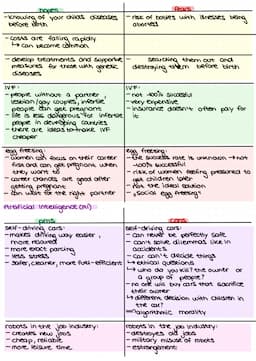 hopes
fears
- knowing of your childs diseases before birth
- risk of babies with illnesses being aborted
- costs are falling rapidly
↳ can become common
- develop treatments and supportive measures for those with genetic diseases
- searching them out and destroying them before birth
IVF:
- people without a partner, lesbian/gay couples, infertile people can get pregnant
- life is less dangerous for infertile people in developing countries
- there are ideas to make IVF cheaper
IVF:
- not 100% successful
- very expensive
- insurance doesn't often pay for it
egg freezing:
- women can focus on their career first and can get pregnant when they want to
- career chances are good after getting pregnant
- can wait for the right partner
egg freezing:
- the success rate is unknown → not 100% successful
- risk of women feeling pressured to get children later
- not the ideal solution
- "social egg freezing"
Artificial Intelligence (AI):
pros
cons
self-driving cars:
- makes driving way easier, more relaxed
- more exact parking
- less stress
- safer, cleaner, more fuel-efficient
self-driving cars:
- can never be perfectly safe
- can't solve dilemmas like in accidents
- car can't decide things
↳ ethical questions
↳ who do you kill? the owner or a group of people?
- no one will buy cars that sacrifice their owner
↳ different decision with children in the car?
↳ "algorithmic morality"
robots in the job industry:
- creates new jobs
- cheap, reliable
- more leisure time
robots in the job industry:
- destroyes old jobs
- military misuse of robots
- estrangement